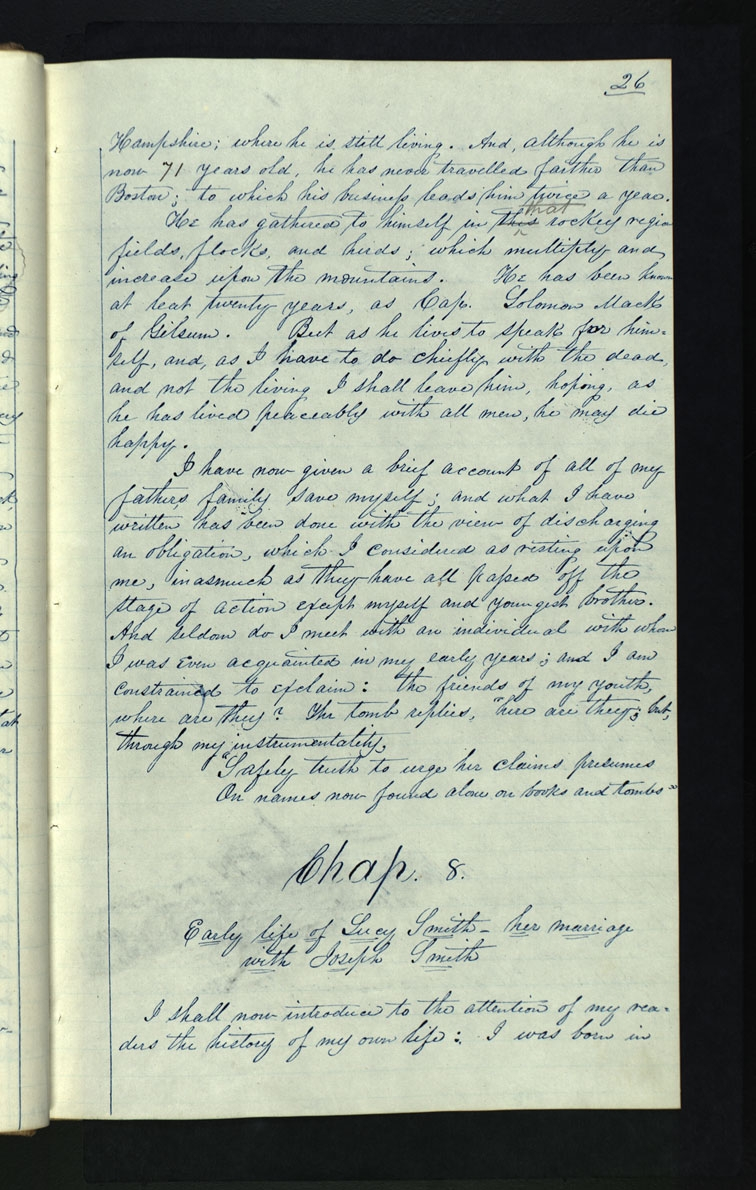 26
Hampshire; where he is still living. And, although he is
now 71 years old, he has never travelled farther than
Boston; to which his business leads him twice a year.
He has gathered to himself in this that rockey regio
fields, flocks, and herds; which multiply and
increase upon the mountains. He has been known
at leat twenty years, as Cap. Solomon Mack
of Gilsum. But as he lives to speak for him=
self, and, as I have to do chiefly with the dead,
and not the living I shall leave him, hoping, as
he has lived peaceably with all men, he may die
happy.
I have now given a brief account of all of my
fathers family save myself; and what I have
written has been done with the view of discharging
an obligation, which I considered as resting upon
me, inasmuch as they have all passed off the
stage of action except myself and youngest brother.
And seldom do I meet with an individual with whom
I was even acquainted in my early years; and I am
constrained to exclaim: the friends of my youth,
where are they? The tomb replies, "here are they; but,
through my instrumentality,
"Safely truth to urge her claims presumes
On names now found alone on books and tombs"
Chap. 8.
Early life of Lucy Smith – her marriage
with Joseph Smith
I shall now introduce to the attention of my rea=
ders the history of my own life: I was born in